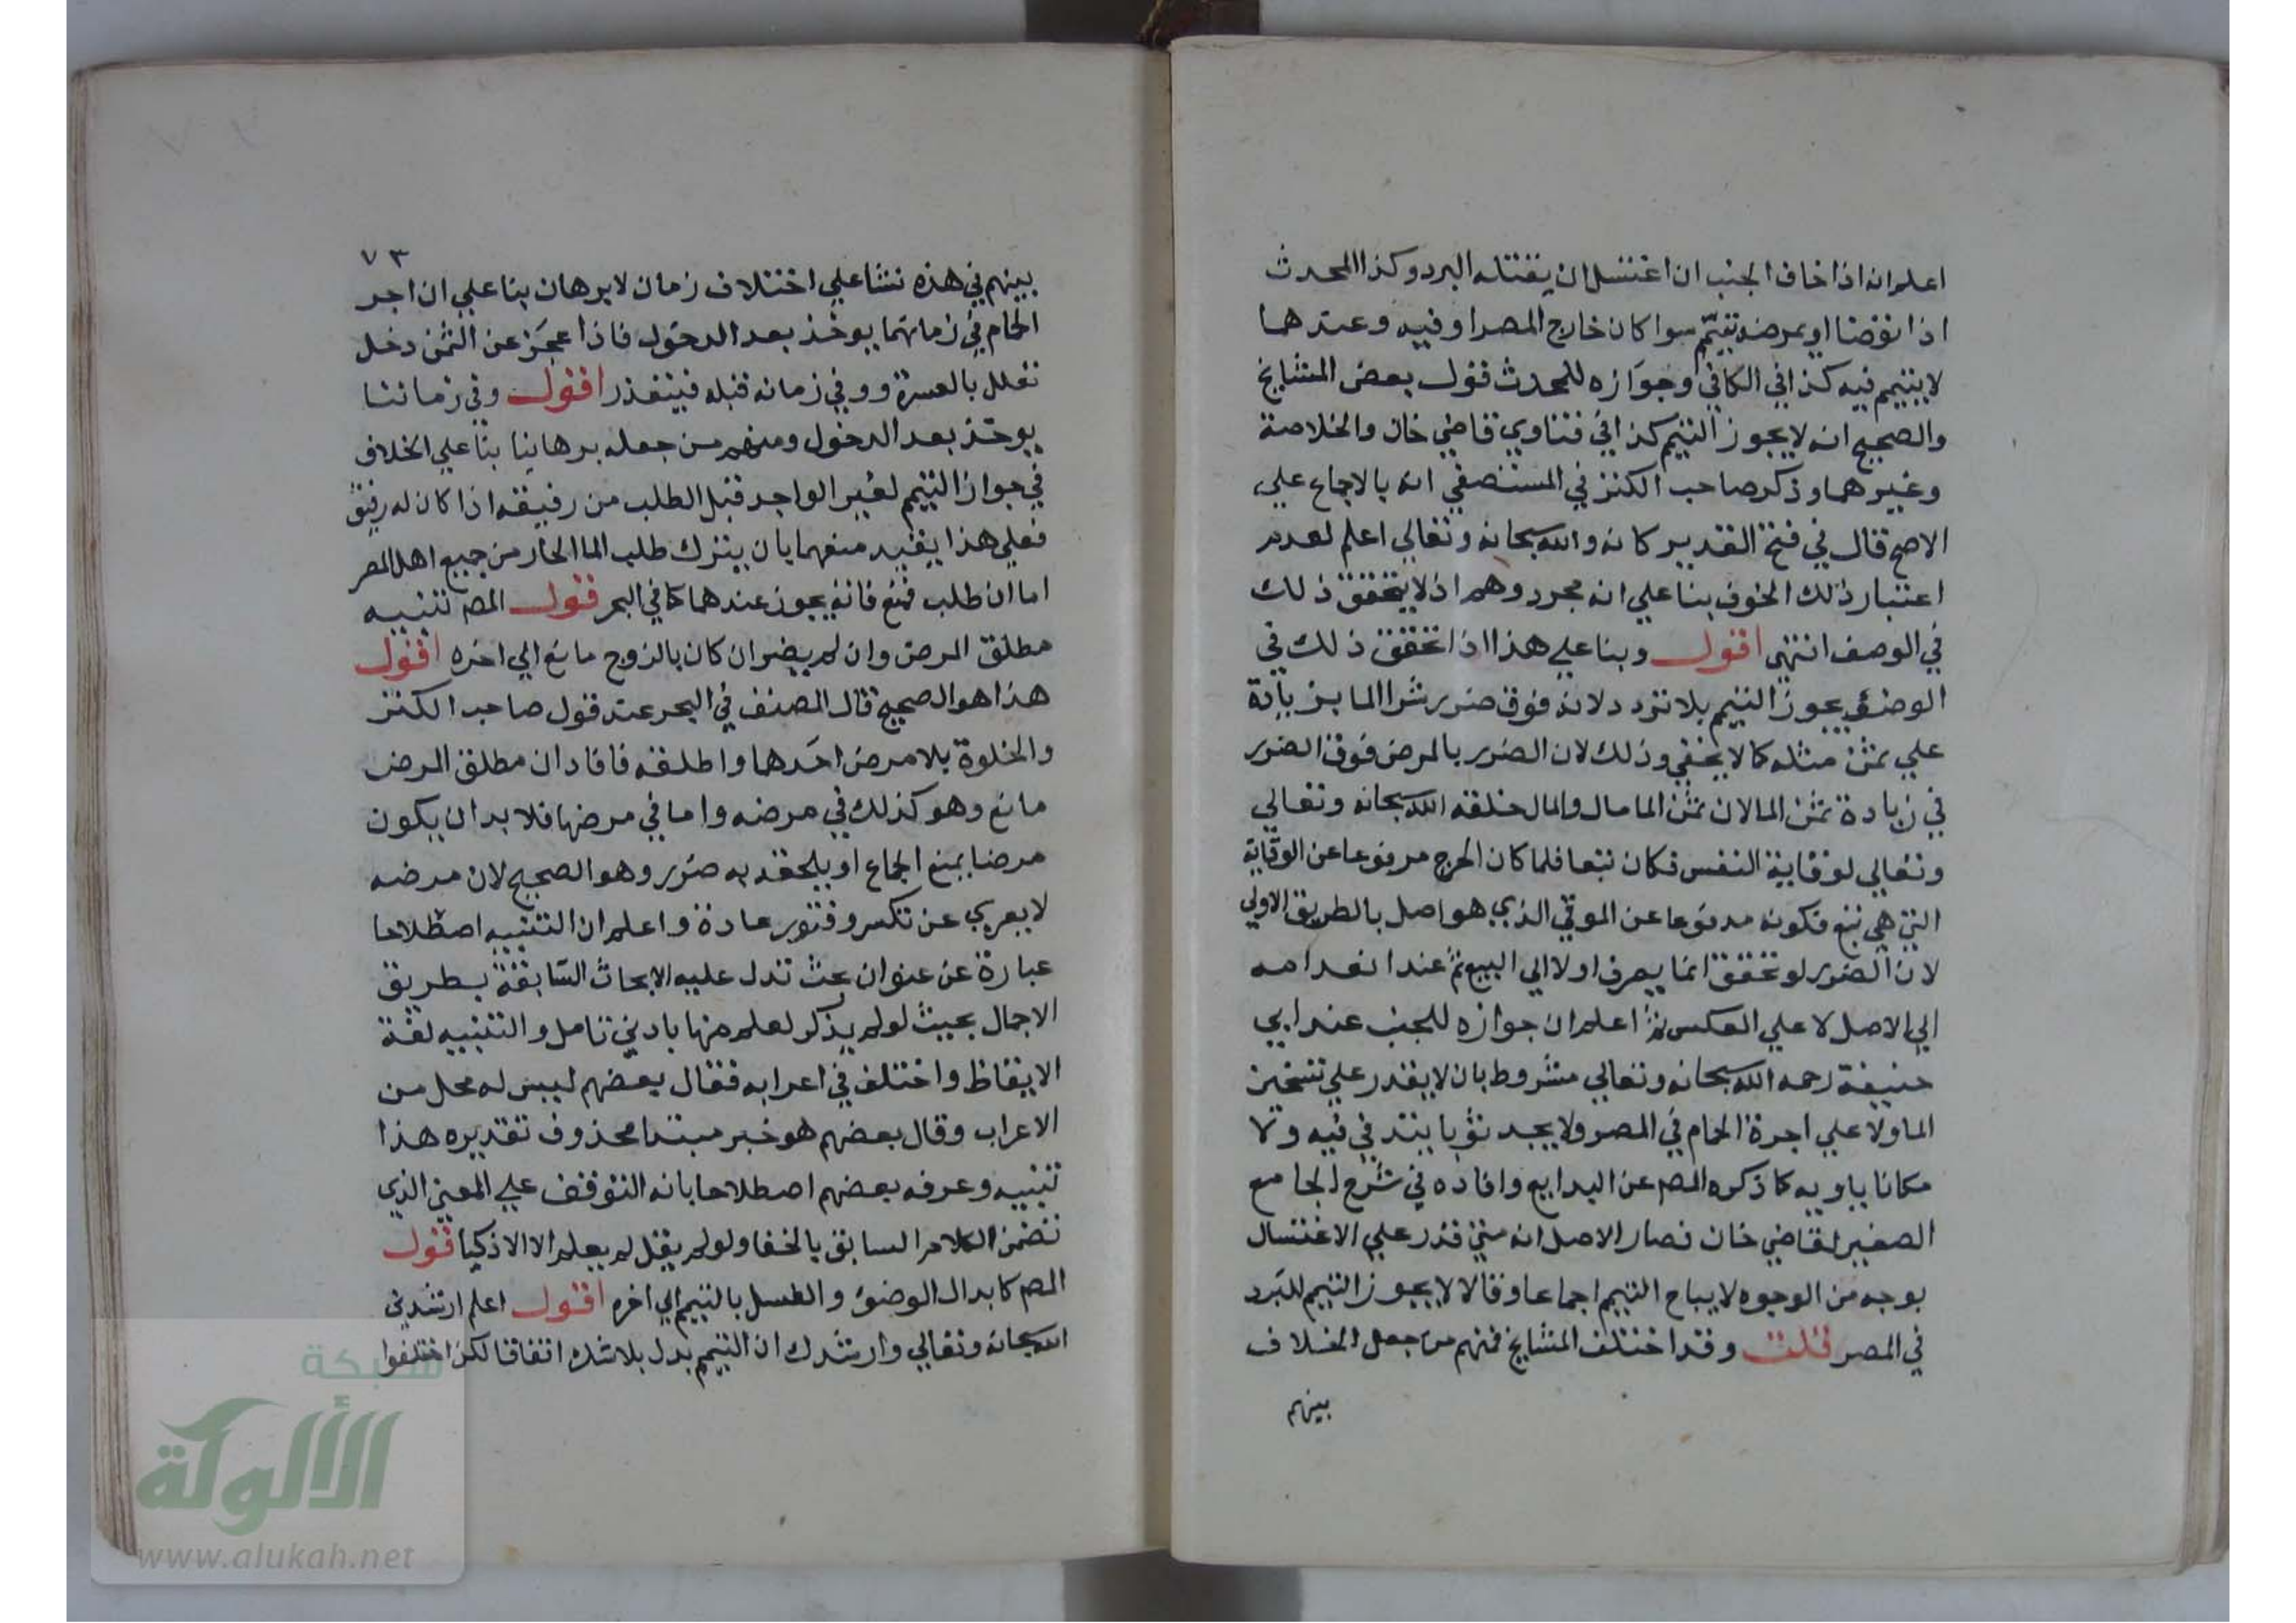 اعلم انه اذا خاف الجنب ان اغتسل ان يقتله البرد وكذا المحدث
اذا توضا او يمرضه تيمم سوا كان خارج المصر او فيه وعندهما
لا يتيمم فيه كذا في الكافي وجوازه للمحدث قول بعض المشايخ
والصحيح انه لا يجوز التيمم كذا في فتاوي قاضي خان والخلاصة
وغيرهما وذكر صاحب الكنز في المستصفي انه بالاجماع علي
الاصح قال في فتح القدير كانه والله سبحانه وتعالي اعلم لعدم
اعتبار ذلك الخوف بنا علي انه مجرد وهم اذ لا يتحقق ذلك
في الوصف انتهي اقول وبنا علي هذا اذا تحقق ذلك في
الوضؤ يجوز التيمم بلا تردد لانه فوق ضرر شرا الما بزيادة
علي ثمن مثله كما لا يخفي وذلك لان الضرر بالمرض فوق الضرر
في زيادة ثمن الما لان ثمن الما مال والمال خلقه الله سبحانه وتعالي
وتعالي لوقاية النفس فكان تبعا فلما كان الحرج مرفوعا عن الوقاية
التي هي تبع فكونه مدفوعا عن الموقي الذي هو اصل بالطريق الاولي
لان الضرر لو تحقق انما يصرف اولا الي البيع ثم عند انعدامه
الي الاصل لا علي العكس ثم اعلم ان جوازه للجنب عند ابي
حنيفة رحمه الله سبحانه وتعالي مشروط بان لا يقدر علي تسخين
الما ولا علي اجرة الحمام في المصر ولا يجد ثوبا يتدفي فيه ولا
مكانا ياويه كما ذكره المص عن البدايع وافاده في شرح الجامع
الصغير لقاضي خان فصار الاصل انه متي قدر علي الاغتسال
بوجه من الوجوه لا يباح التيمم اجماعا وقالا لا يجوز التيمم للبرد
في المصر قلت وقد اختلف المشايخ فمنهم من جعل الخلاف
بينهم
٧٣
بينهم في هذه نشا علي اختلاف زمان لا برهان بنا علي ان اجر
الحمام في زمانهما يوخذ بعد الدخول فاذا عجز عن الثمن دخل
تعلل بالعسرة ووفي زمانه قبله فيتعذر اقول وفي زماننا
يوخذ بعد الدخول ومنهم من جعله برهانيا بنا علي الخلاف
في جواز التيمم لغير الواجد قبل الطلب من رفيقه اذا كان له رفيق
فعلي هذا يقيد منعهما بان يترك طلب الما الحار من جميع اهل المصر
اما ان طلب فمنع فانه يجوز عندهما كما في البحر قول المص تنبيه
مطلق المرض وان لم يضر ان كان بالزوج مانع الي اخره اقول
هذا هو الصحيح قال المصنف في البحر عند قول صاحب الكنز
والخلوة بلا مرض احدهما واطلقه فافاد ان مطلق المرض
مانع وهو كذلك في مرضه واما في مرضها فلا بد ان يكون
مرضا يمنع الجماع او يلحقه به ضرر وهو الصحيح لان مرضه
لا يعري عن تكسر وفتور عادة واعلم ان التنبيه اصطلاحا
عبارة عن عنوان بحث تدل عليه الابحاث السابقة بطريق
الاجمال بحيث لو لم يذكر لعلم منها بادني تامل والتنبيه لغة
الايقاظ واختلف في اعرابه فقال بعضهم ليس له محل من
الاعراب وقال بعضهم هو خبر مبتدا محذوف تقديره هذا
تنبيه وعرفه بعضهم اصطلاحا بانه التوقف علي المعني الذي
تضمن الكلام السابق بالخفا ولو لم يقل لم يعلم الا الاذكيا قول
المص كابدال الوضؤ والغسل بالتيمم الي اخره اقول اعلم ارشدني
الله سبحانه وتعالي وارشدك ان التيمم بدل بلا شك اتفاقا لكن اختلفوا
شبكة
الألوكة
www.alukah.net